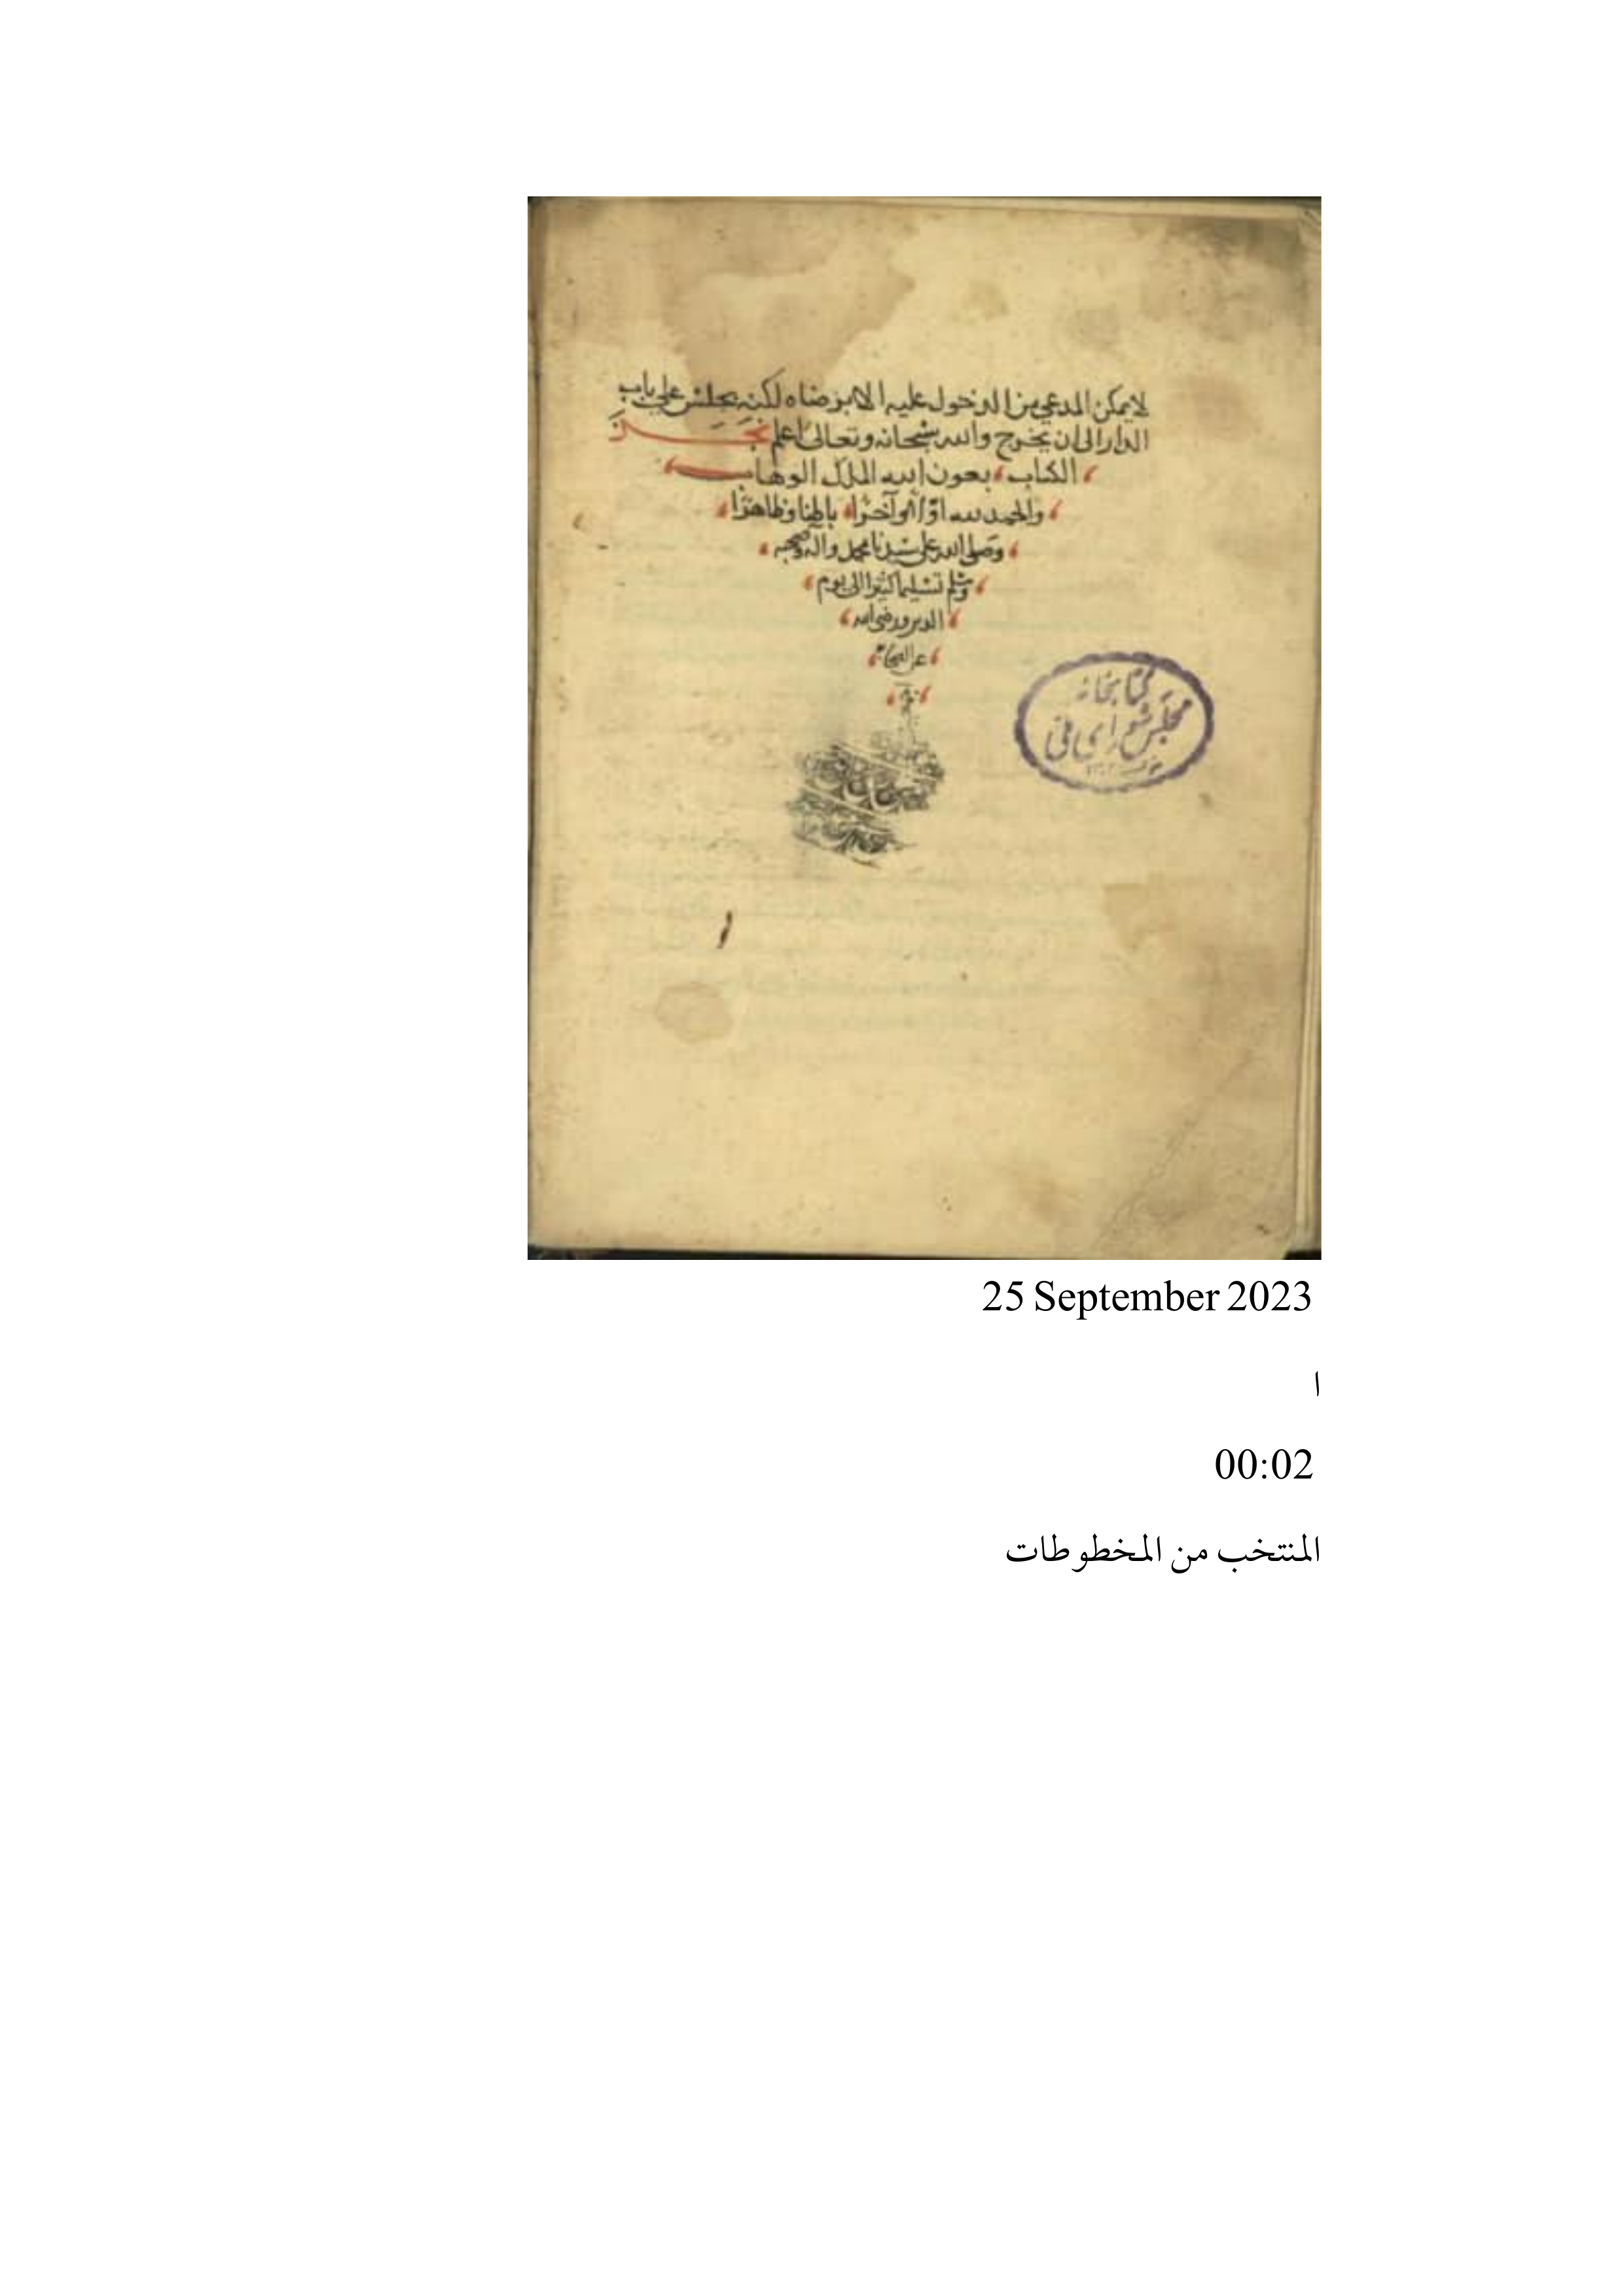 لا يمكن المدعي من الدخول عليه الا برضاه لكنه يجلس على باب
الدار الى ان يخرج والله سبحانه وتعالى اعلم نجز
الكتاب بعون الله الملك الوهاب
والحمد لله اولا وآخرا باطنا وظاهرا
وصلى الله على سيدنا محمد وآله وصحبه
وسلم تسليما كثيرا الى يوم
الدين ورضي الله
عن الصحابة
كتابخانه
مجلس شورای ملی
25 September 2023
ا
00:02
المنتخب من المخطوطات